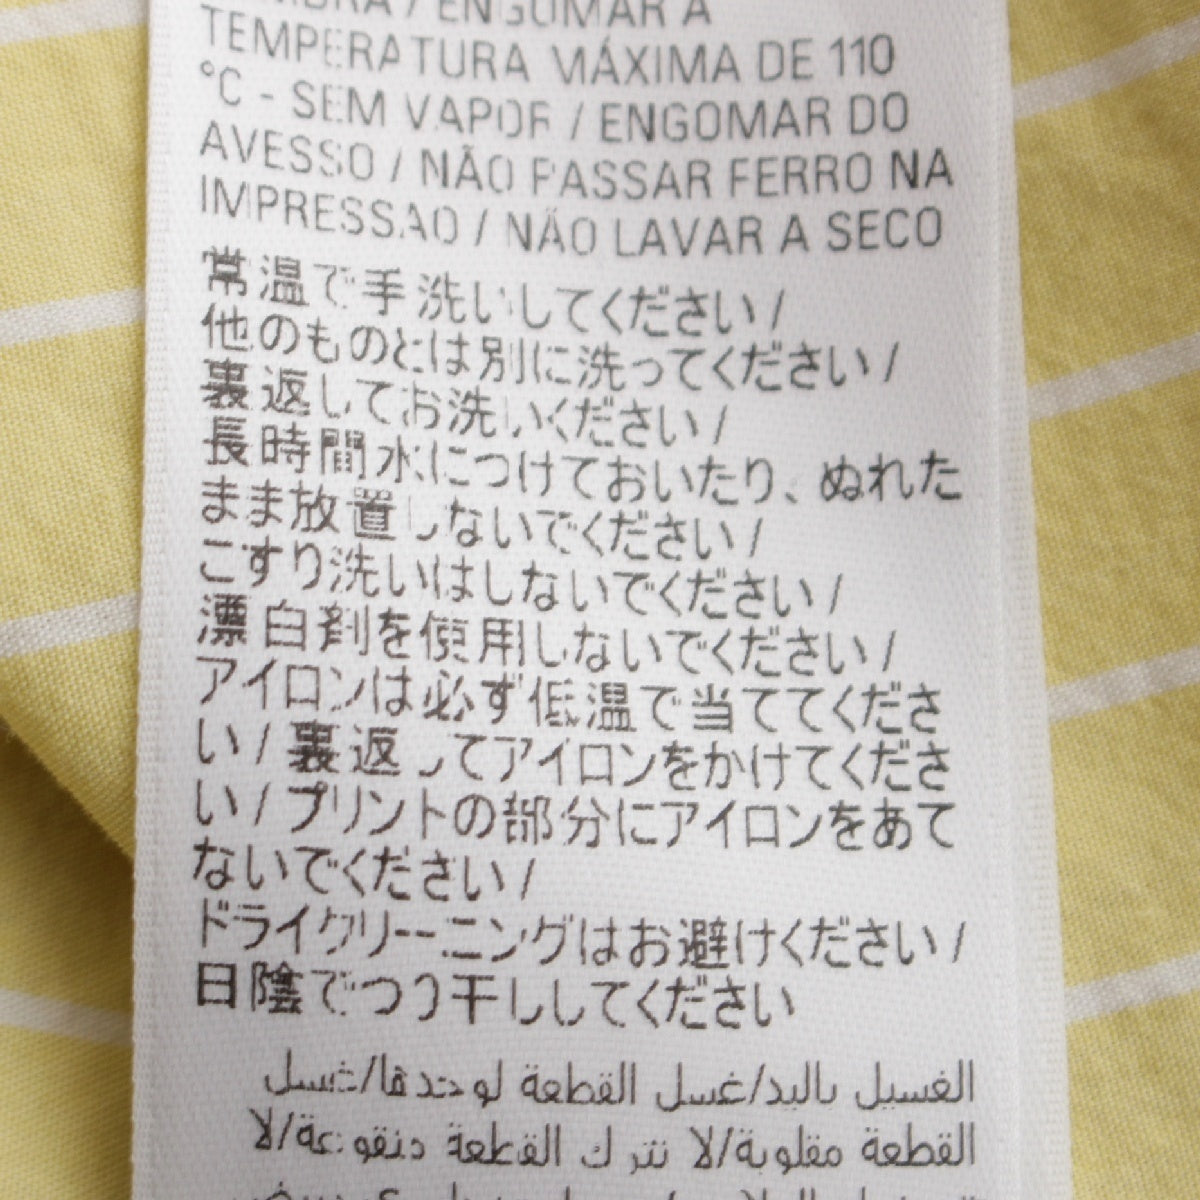 ENGOMAR A
TEMPERATURA MÁXIMA DE 110
°C - SEM VAPOR / ENGOMAR DO
AVESSO / NÃO PASSAR FERRO NA
IMPRESSÃO / NÃO LAVAR A SECO
常温で手洗いしてください /
他のものとは別に洗ってください /
裏返してお洗いください /
長時間水につけておいたり、ぬれた
まま放置しないでください /
こすり洗いはしないでください /
漂白剤を使用しないでください /
アイロンは必ず低温で当ててくださ
い / 裏返してアイロンをかけてくださ
い / プリントの部分にアイロンをあて
ないでください /
ドライクリーニングはお避けください /
日陰でつり干ししてください
الغسيل باليد/غسل القطعة لوحدها/غسل
القطعة مقلوبة/لا تترك القطعة منقوعة/لا